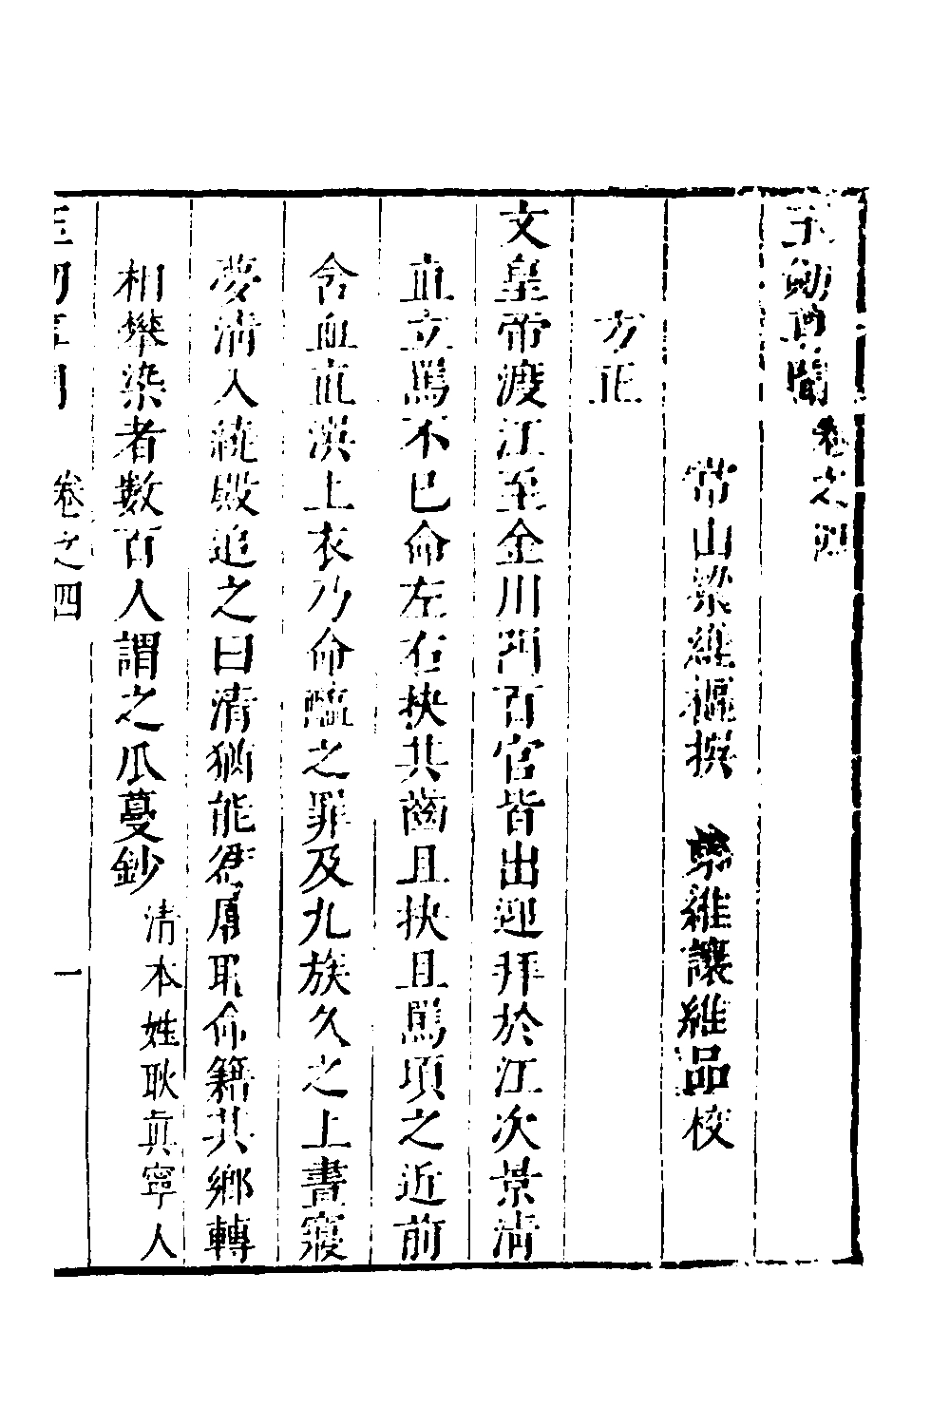 玉劒尊聞 卷之四
常山梁維樞撰 孿維讓維品校
方正
文皇帝渡江至金川門百官皆出迎拜於江次景清
直立罵不已命左右抉其齒且抉且罵項之近前
含血直漢上衣乃命醢之罪及九族久之上晝寢
夢清入繞殿追之曰清猶能爲厲耶命籍其鄉轉
相攀染者數百人謂之瓜蔓鈔
清本姓耿眞寧人
卷之四 一